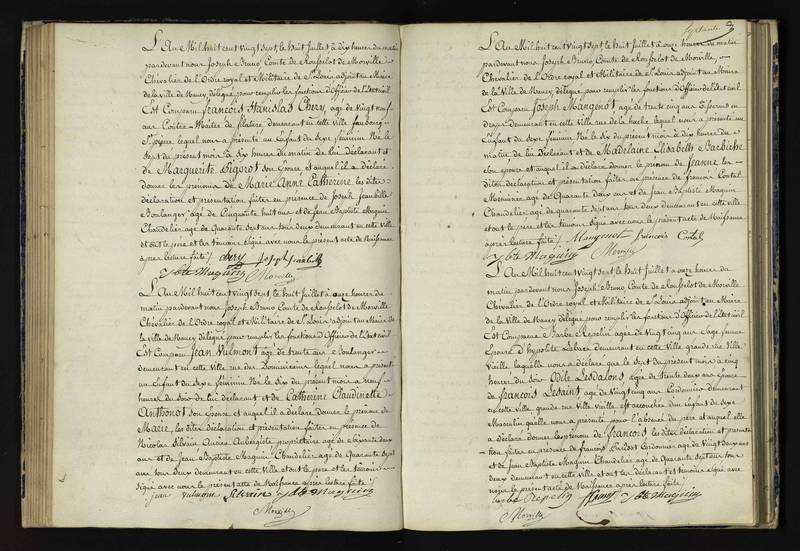 L'An Mil huit cent vingt sept, le huit Juillet à dix heures du matin
pardevant nous Joseph Bruno Comte de Rousselot de Morville
Chevalier de l'Ordre royal et Militaire de St Louis adjoint au Maire
de la ville de Nancy délégué pour remplir les fonctions d'Officier de l'Etat civil
Est Comparu François Stanislas Chery, agé de Vingt neuf
ans Contre-Maitre de filature demeurant en cette ville faubourg
St pierre lequel nous a présenté un Enfant du Sexe féminin Né le
Sept du présent mois à dix heures du matin de lui déclarant et
de Marguerite Bigorot son Epouse et auquel il a déclaré
donner les prénoms de Marie Anne Catherine les dites
déclaration et présentation faites en présence de Joseph
Boulanger agé de Cinquante huit ans et de Jean Baptiste Maguin
Chandelier agé de Quarante Sept ans tous deux demeurant en cette ville
et ont le pere et les témoins signé avec nous le présent acte de Naissance
après lecture faite /. chery Joseph
J Bte Maguin Morville
L'An Mil huit cent vingt sept, le huit Juillet à onze heures du
matin pardevant nous Joseph Bruno Comte de Rousselot de Morville
Chevalier de l'Ordre royal et Militaire de St Louis adjoint au Maire de
la ville de Nancy délégué pour remplir les fonctions d'Officier de l'Etat civil
Est Comparu Jean Valmont agé de trente ans Boulanger
demeurant en cette ville rue des Dominicains lequel nous a présenté
un Enfant du Sexe féminin Né le Six du présent mois à neuf
heures du soir de lui déclarant et de Catherine Claudinette
Anthonot son Epouse et auquel il a déclaré donner le prénom de
Marie, les dites déclaration et présentation faites en présence de
Nicolas Silvain Ancien Aubergiste propriétaire agé de Soixante deux
ans et de Jean Baptiste Maguin Chandelier agé de Quarante Sept
ans tous deux demeurant en cette Ville et ont le pere et les témoins
signé avec nous le présent acte de Naissance après lecture faite /.
jean valmont Silvain J Bte Maguin
Morville
L'An Mil huit cent vingt sept, le huit Juillet à onze heures du matin
pardevant nous Joseph Bruno Comte de Rousselot de Morville,
Chevalier de l'Ordre royal et Militaire de St Louis adjoint au Maire
de la Ville de Nancy délégué pour remplir les fonctions d'Officier de l'Etat civil
Est Comparu Joseph Mangenot agé de trente cinq ans Tisserand en
draps demeurant en cette ville rue de la hache lequel nous a présenté un
Enfant du sexe féminin Né le Six du présent mois à dix heures du
matin de lui Déclarant et de Madelaine Elisabeth Barbiche
son épouse et auquel il a déclaré donner le prénom de Jeanne les
dites déclaration et présentation faites en présence de François Contal
Menuisier agé de Quarante deux ans et de Jean Baptiste Maguin
Chandelier agé de quarante sept ans tous deux demeurant en cette ville
et ont le pere et les témoins signé avec nous le présent acte de Naissance
après lecture faite /. Mangenot francois Contal
J Bte Maguin Morville
L'An Mil huit cent vingt sept, le huit Juillet à onze heures du
matin pardevant nous Joseph Bruno Comte de Rousselot de Morville
Chevalier de l'Ordre royal et Militaire de St Louis adjoint au Maire
de la Ville de Nancy délégué pour remplir les fonctions d'Officier de l'Etat civil
Est Comparue Barbe Repelin agée de Vingt cinq ans Sage femme
Epouse d'hypolite demeurant en cette Ville grande rue Ville
Vieille laquelle nous a déclaré que le Sept du présent mois à cinq
heures du soir Odile Lesdalons agée de trente deux ans Epouse
de françois Lesaint agé de Vingt cinq ans Cordonnier demeurant
en cette ville grande rue Ville Vieille est accouchée d'un Enfant du sexe
Masculin qu'elle nous a présenté pour l'absence du pere et auquel elle
a déclaré donner le prénom de françois les dites déclaration et présenta
tion faites en présence de françois Cordonnier agé de Vingt deux ans
et de Jean Baptiste Maguin Chandelier agé de Quarante Sept ans tous
deux demeurant en cette ville et ont la déclarante et témoins signé avec
nous le présent acte de Naissance après lecture faite /.
barbe Repelin J Bte Maguin
Morville